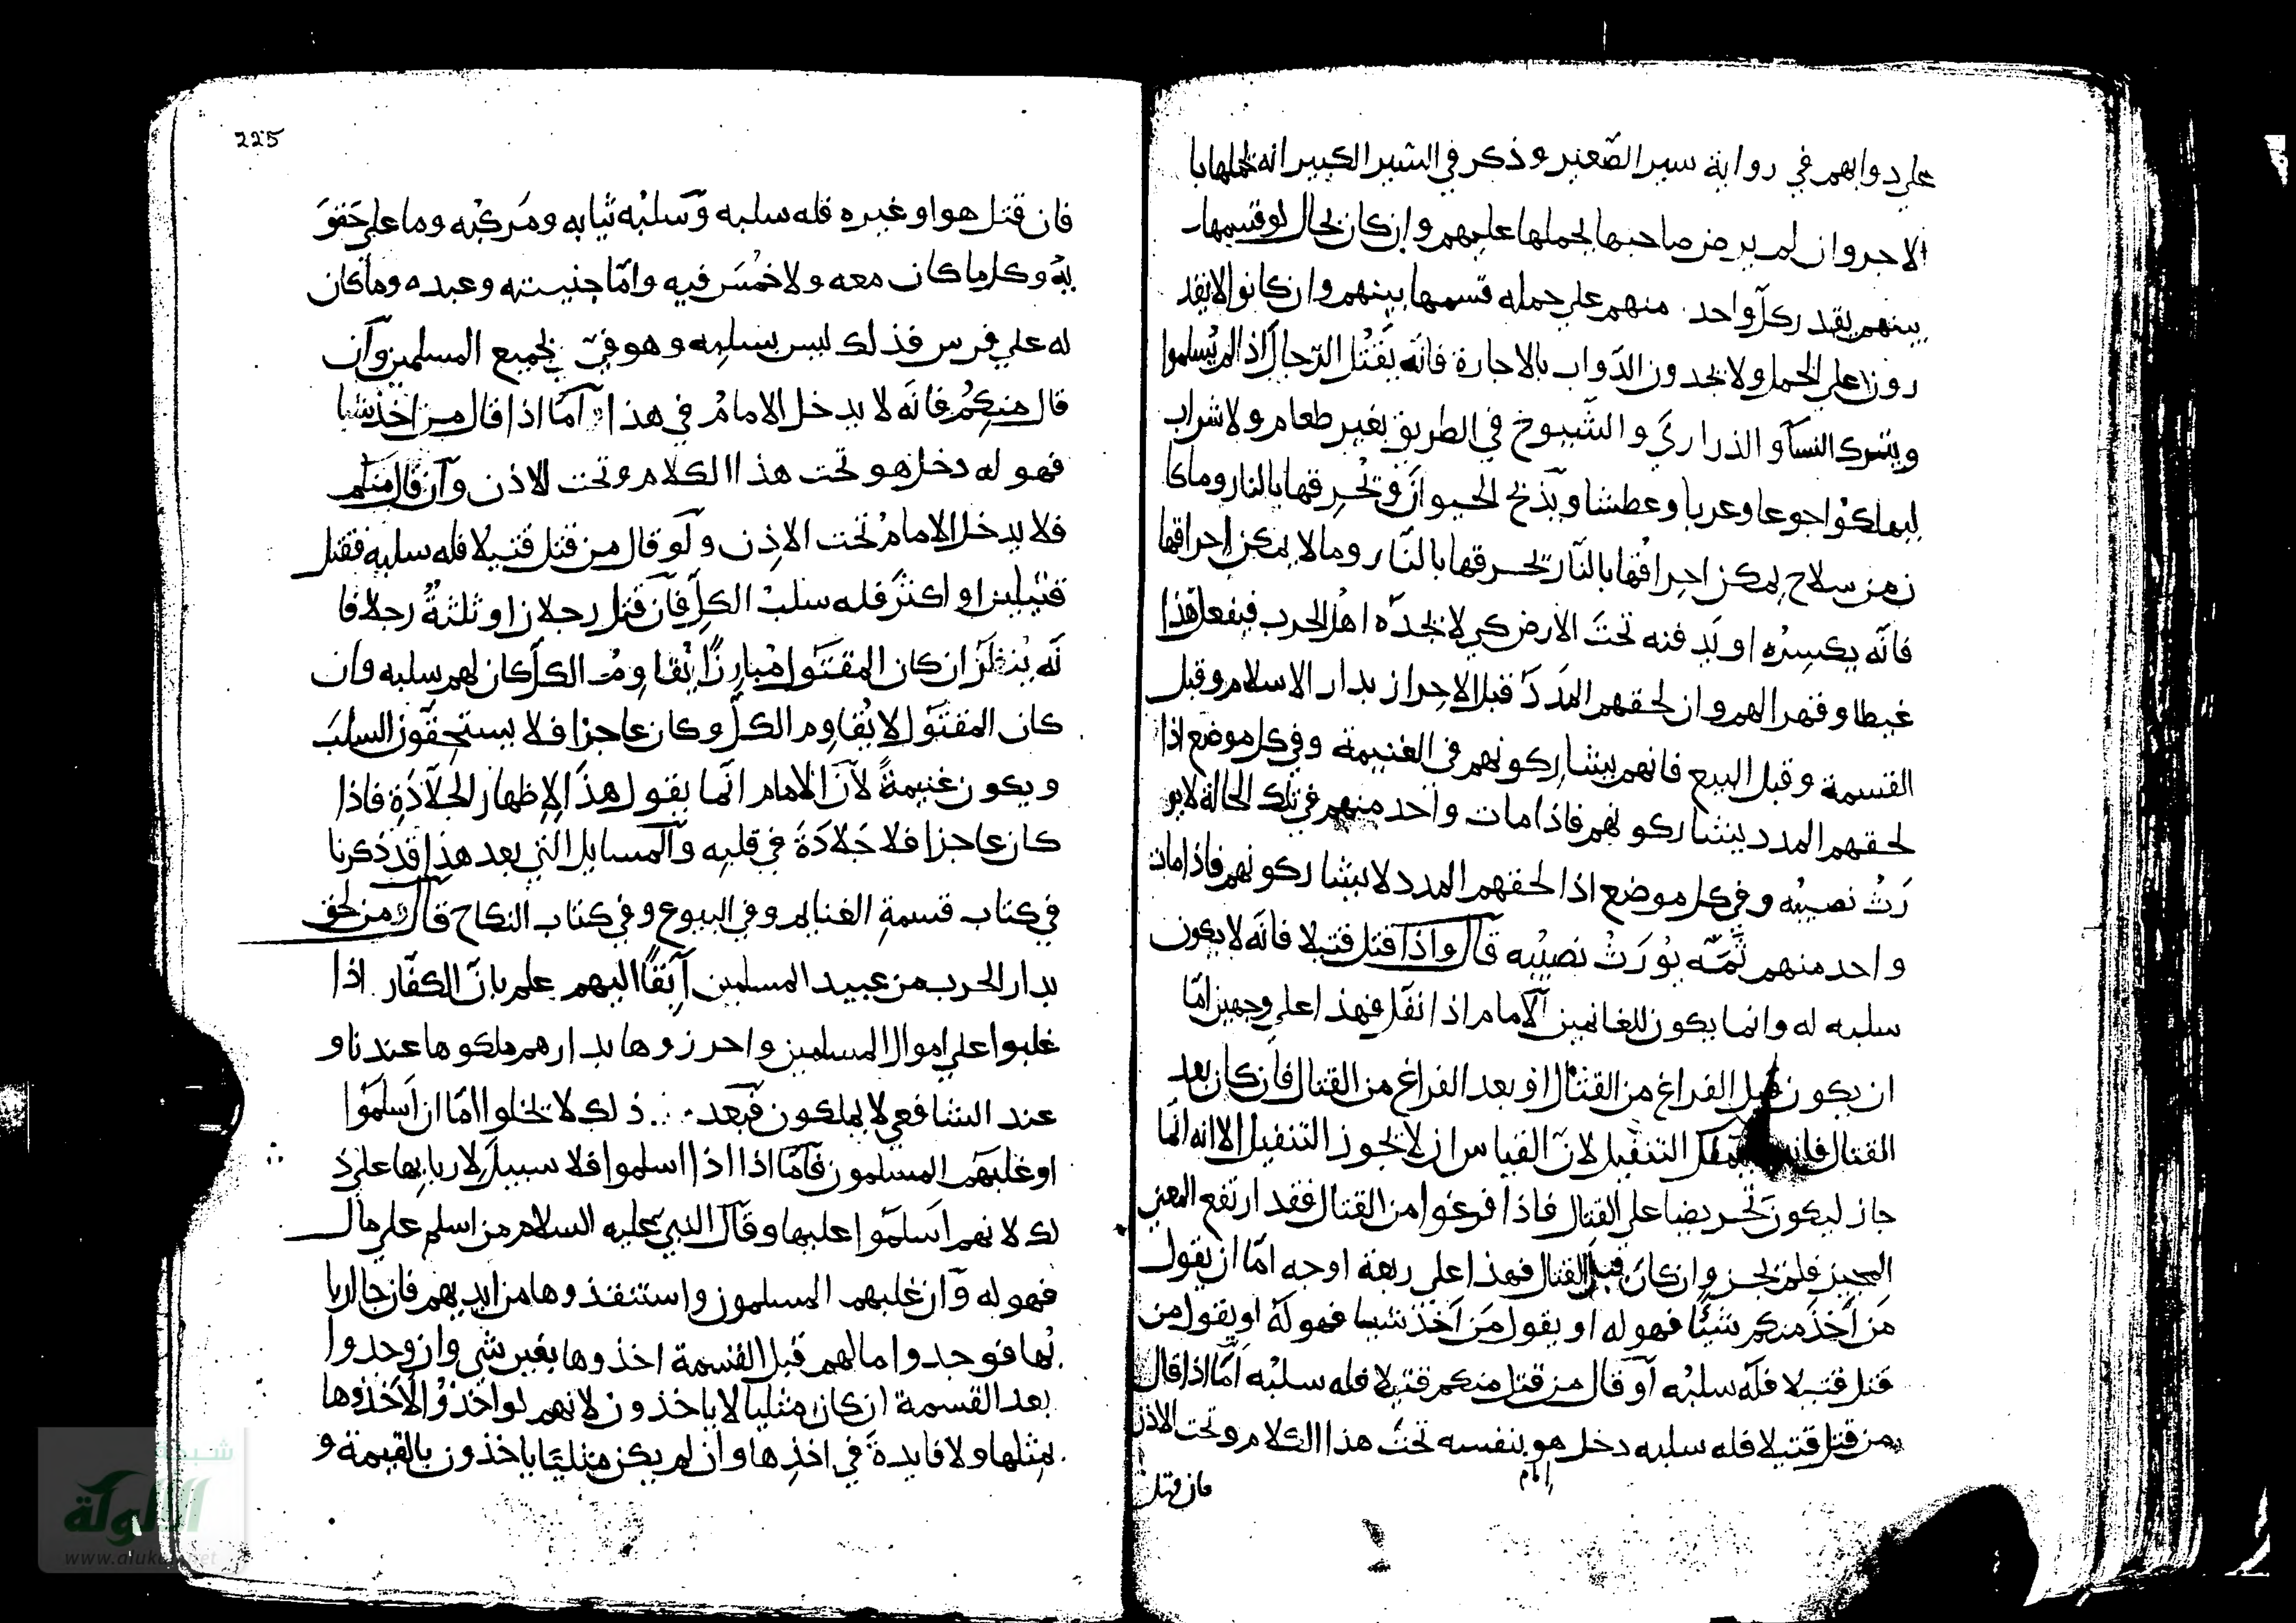 علي دوابهم في رواية سير الصغير وذكر في السير الكبير انه يحملها با
لاجر وان لم يرض صاحبها يحملها عليهم وان كان بحال لو قسمها
بينهم يقدر كل واحد منهم علي حمله قسمها بينهم وان كانوا لا يقد
رون علي الحمل ولا يجدون الدواب بالاجارة فانه يقتل الرجال اذا لم يسلموا
ويترك النسآ والذراري والشيوخ في الطريق بغير طعام ولا شراب
ليهلكوا جوعا وعريا وعطشا ويذبح الحيوان ويحرقها بالنار وما كا
ن من سلاح يمكن احراقها بالنار يحرقها بالنار وما لا يمكن احراقها
فانه يكسره او يدفنه تحت الارض كي لا يجده اهل الحرب فيفعل هذا
غيظا وقهرا لهم وان لحقهم المدد قبل الاحراز بدار الاسلام وقبل
القسمة وقبل البيع فانهم يشاركونهم في الغنيمة وفي كل موضع اذا
لحقهم المدد يشاركونهم فاذا مات واحد منهم في تلك الحالة لا يو
رث نصيبه وفي كل موضع اذا لحقهم المدد لا يشاركونهم فاذا مات
واحد منهم ثمه يورث نصيبه قال واذا قتل قتيلا فانه لا يكون
سلبه له وانما يكون للغانمين الامام اذا نفل فهذا علي وجهين اما
ان يكون قبل الفراغ من القتال او بعد الفراغ من القتال فان كان بعد
القتال فانه التنفيل لان القياس ان لا يجوز التنفيل الا انه انما
جاز ليكون تحريضا علي القتال فاذا فرغوا من القتال فقد ارتفع المعني
المجيز فلم يجز وان كان قبل القتال فهذا علي ربعة اوجه اما ان يقول
من اخذ منكم شيئا فهو له او يقول من اخذ شيبا فهو له او يقول من
قتل قتيلا فله سلبه او قال من قتل منكم قتيلا فله سلبه اما اذا قال
من قتل قتيلا فله سلبه دخل هو بنفسه تحت هذا الكلام وتحت الاذن
امام
فان قتل
225
فان قتل هو او غيره فله سلبه وسلبه ثيابه ومركبه وما علي حقو
يه وكل ما كان معه ولا خمس فيه واما جنيبته وعبده وما كان
له علي فرس فذلك ليس بسلبه وهو فيئ لجميع المسلمين وان
قال منكم فانه لا يدخل الامام في هذا اما اذا قال من اخذ شيا
فهو له دخل هو تحت هذا الكلام وتحت الاذن وان قال منكم
فلا يدخل الامام تحت الاذن ولو قال من قتل قتيلا فله سلبه فقتل
قتيلين او اكثر فله سلب الكل فان قتل رجلان او ثلثة رجلا فا
نه ينظر ان كان المقتول مبارزا يقاوم الكل كان لهم سلبه وان
كان المقتول لا يقاوم الكل وكان عاجزا فلا يستحقون السلب
ويكون غنيمة لان الامام انما يقول هذا لاظهار الجلادة فاذا
كان عاجزا فلا جلادة في قلبه والمسايل التي بعد هذا قد ذكرنا
في كتاب قسمة الغنايم وفي البيوع وفي كتاب النكاح قال ومن لحق
بدار الحرب من عبيد المسلمين آبقا اليهم علم بان الكفار اذا
غلبوا علي اموال المسلمين واحرزوها بدارهم ملكوها عندنا و
عند الشافعي لا يملكون فبعد ذلك لا يخلوا اما ان اسلموا
او غلبهم المسلمون فاما اذا اذا اسلموا فلا سبيل لاربابها علي ذ
لك لانهم اسلموا عليها وقال النبي عليه السلام من اسلم علي مال
فهو له وان غلبهم المسلمون واستنقذوها من ايديهم فان جا اربا
بها فوجدوا مالهم قبل القسمة اخذوها بغير شي وان وجدوا
بعد القسمة ان كان مثليا لا ياخذون لانهم لو اخذوا لاخذوها
بمثلها ولا فايدة في اخذها وان لم يكن مثليا ياخذون بالقيمة و
شبكة
الألوكة
www.alukah.net